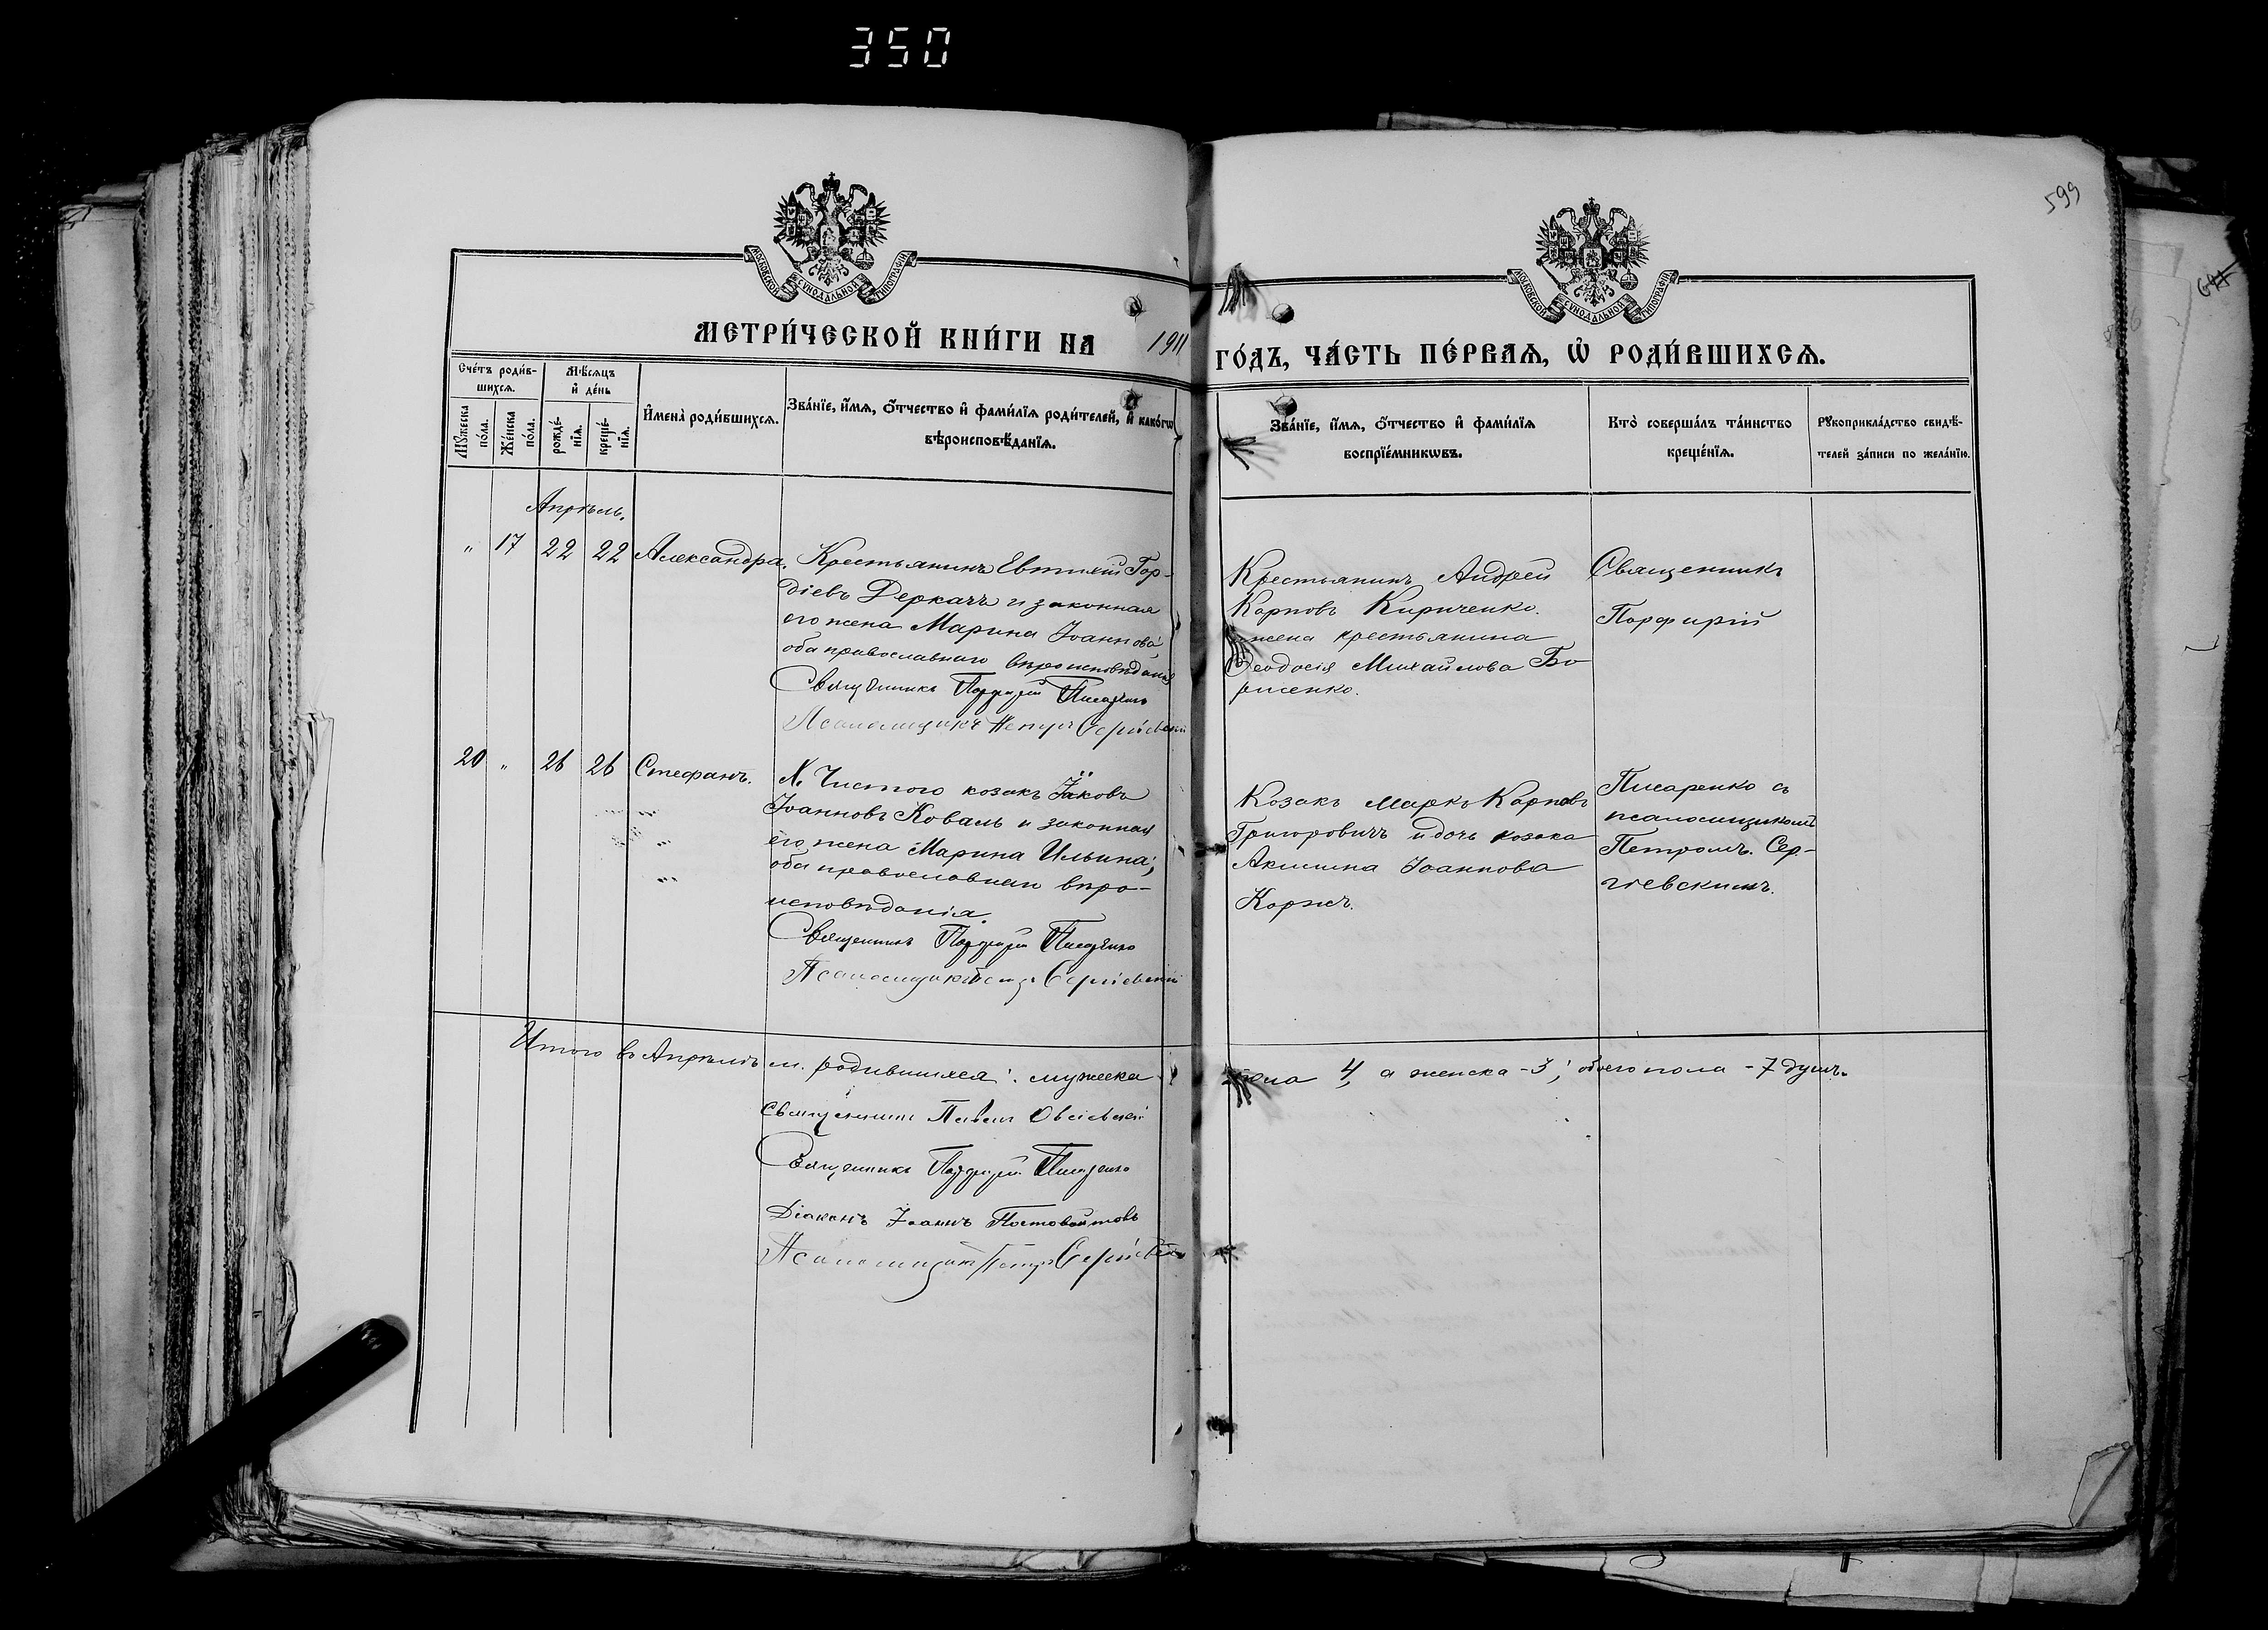 350
599
МОСКОВСКОЙ СѴНОДАЛЬНОЙ ТИПОГРАФІИ
МОСКОВСКОЙ СѴНОДАЛЬНОЙ ТИПОГРАФІИ
МЕТРИ́ЧЕСКОЙ КНИ́ГИ НА 1911 ГО́ДЪ, ЧА́СТЬ ПЕ́РВАЯ, Ѡ РОДИ́ВШИХСЯ.
Сче́тъ роди́в-
шихся.
Мꙋжеска по́ла.
Же́нска по́ла.
Мѣсяцъ
и де́нь
рожде́-
нїя.
креще́-
нїя.
Имена̀ роди́вшихся.
Зва́нїе, и́мя, о́тчество и фами́лїя роди́телей, и како́гѡ
вѣроисповѣ́данїя.
Зва́нїе, и́мя, о́тчество и фами́лїя
воспрїе́мникѡвъ.
Кто̀ соверша́лъ та́инство
креще́нїя.
Рꙋкоприкла́дство свидѣ́-
телей за́писи по жела́нїю.
Апрѣль.
" 17 22 22 Александра.
Крестьянинъ Евтихій Гор-
діевъ Деркачъ и законная
его жена Марина Іоаннова,
оба православнаго вѣроисповѣданія
Священникъ Порфирій Писаренко
Псаломщикъ Петръ Сергіевскій
Крестьянинъ Андрей
Карповъ Кириченко.
и жена крестьянина
Ѳеодосія Михайлова Бо-
рисенко.
Священникъ
Порфирій
20 " 26 26 Стефанъ.
Х. Чистого козакъ Іаковъ
Іоанновъ Коваль и законная
его жена Марина Ильина;
оба православнаго вѣро-
исповѣданія.
Священникъ Порфирій Писаренко
Псаломщикъ Петръ Сергіевскій
Козакъ Маркъ Карповъ
Григоровичъ и дочь козака
Акилина Іоаннова
Коржъ.
Писаренко съ
псаломщикомъ
Петромъ Сер-
гіевскимъ.
Итого въ Апрѣлѣ м. родившихся: мужеска пола 4, а женска - 3; обоего пола - 7 душъ.
Священникъ Павелъ Овсіевскій
Священникъ Порфирій Писаренко
Діаконъ Іоаннъ Постовойтовъ
Псаломщикъ Петръ Сергіевскій